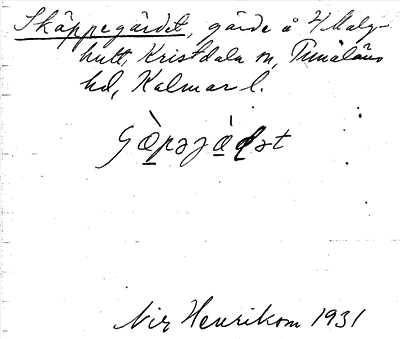 Skäppegärdet, gärde å 4 Malg-
hult, Kristdala sn, Tunaläns
hd, Kalmar l.
Nils Henrikson 1931